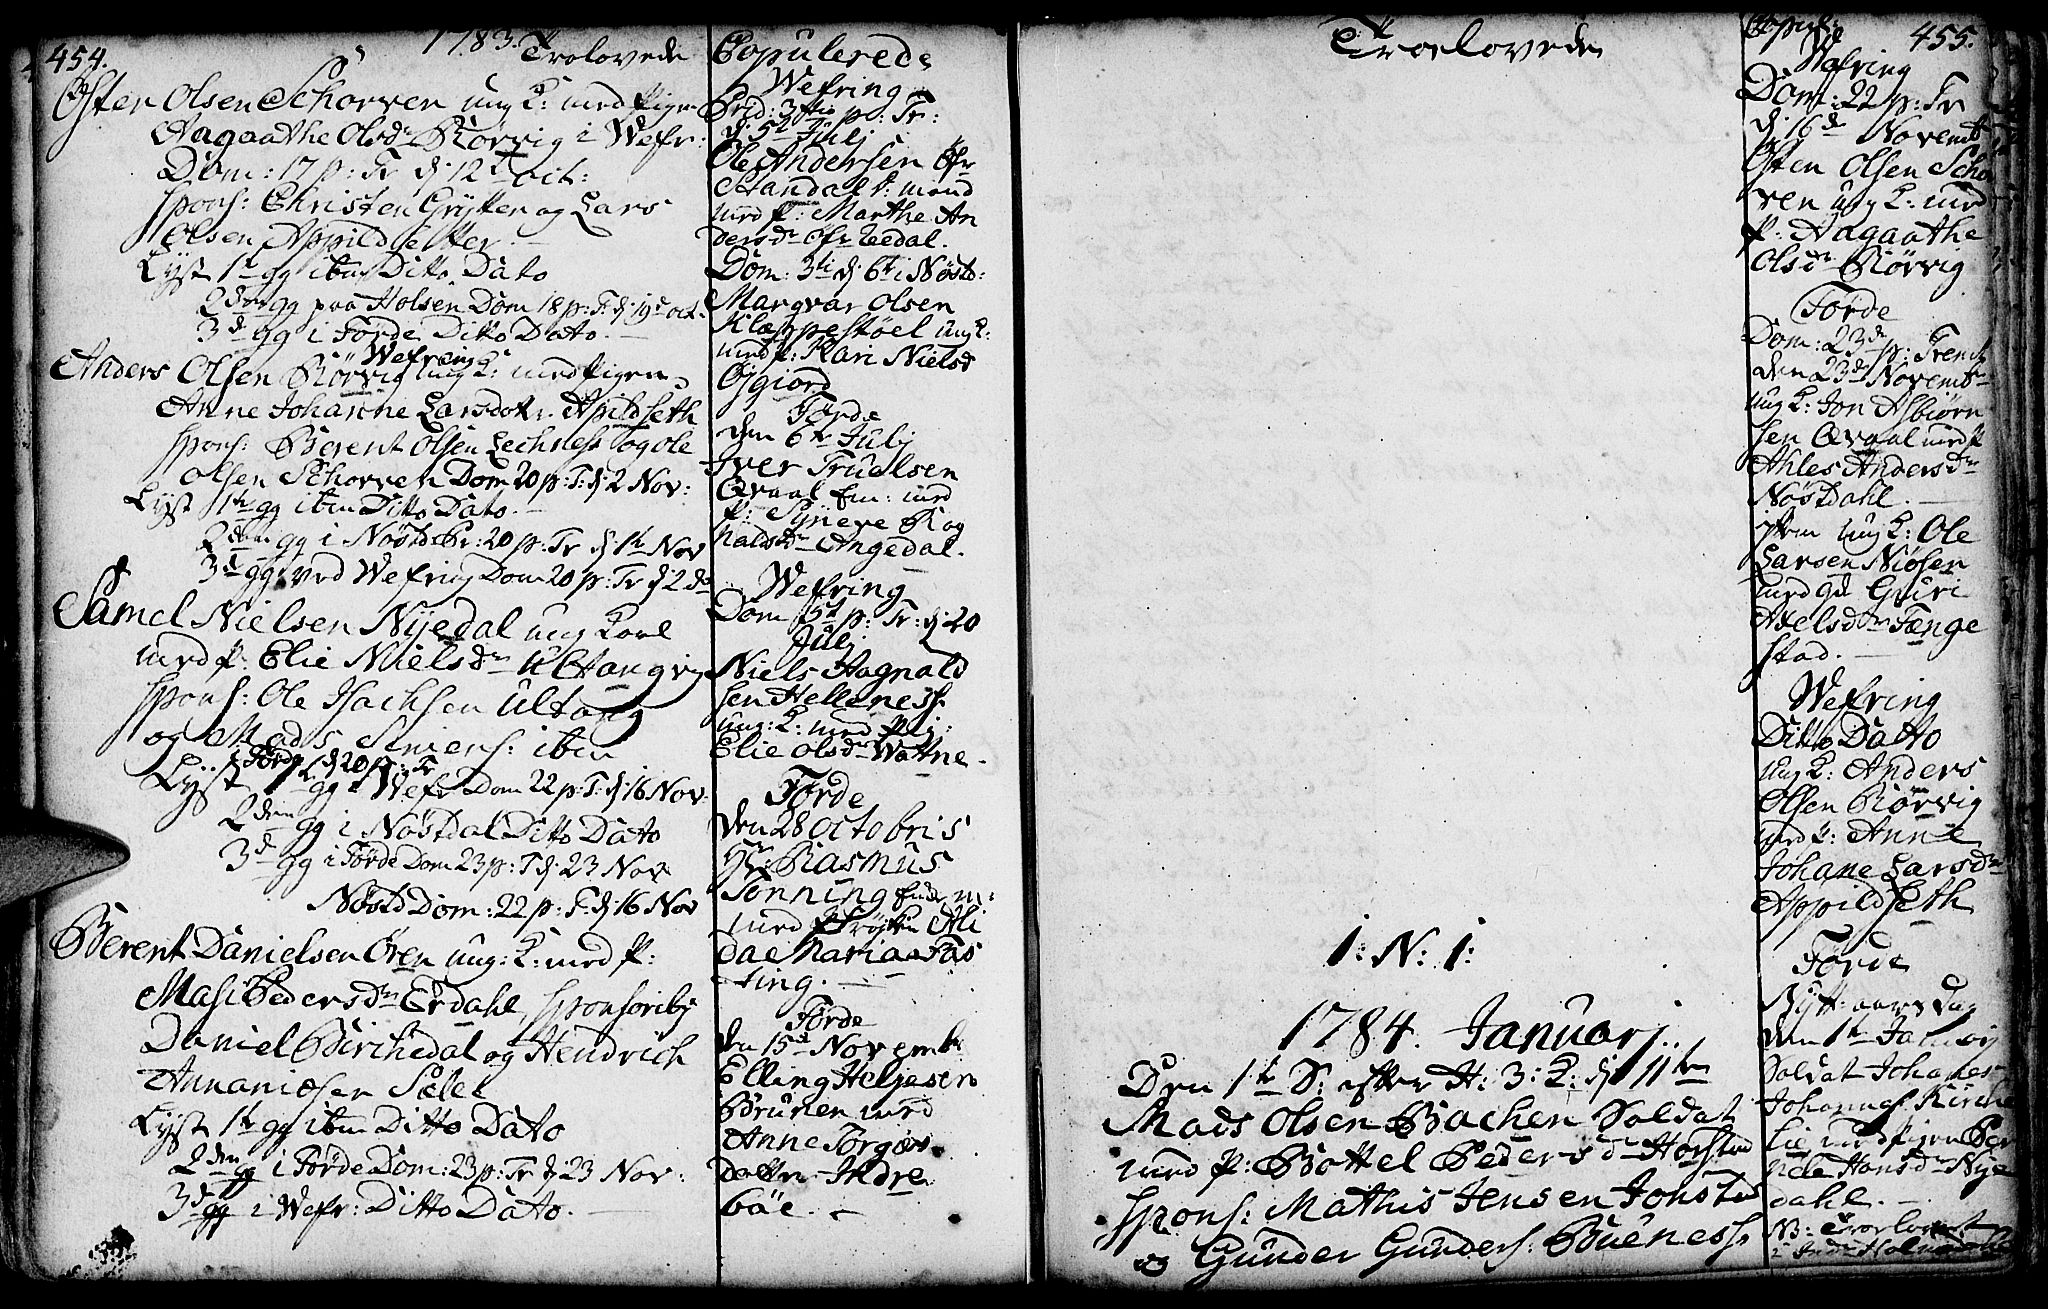 454.
1783.
Trolovede
Østen Olsen Schorven ung K: med Pigen
Aagaathe Olsdr Rørvig i Wefr:
Dom: 17 p: Tr d: 12t Oct:
spons: Christen Grytten og Lars
Olsen Appildsetter.
Lyst 1te gg ibm Ditto Dato
2den gg paa Holsen Dom 18 p: T: d: 19d oct:
3de gg i Førde Ditto Dato.
Wefring
Anders Olsen Rørvig ung K: med Pigen
Anne Johanne Larsdotr. Apildseth
spons: Berent Olsen Lechness og Ole
Olsen Schorven Dom 20 p: T: d: 2 Nov:
Lyst 1te gg ibm Ditto Dato.
2den gg i Nøstd Pr: 20 p: Tr d: 1te Nov
3de gg ved Wefring Dom 20 p: Tr d: 2do
Samel Nielsen Nyedal ung Karl
med P: Elie Nielsdr Ultangvig
spons: Ole Isachsen Ultang
og Mads ibm
i Førde d 20 p: Tr
Lyst 1te gg i Wefr Dom 22 p: T: d: 16 Nov:
2den gg i Nøstdal Ditto Dato
3de gg i Førde Dom 23 p: T d: 23 Nov
Nøstd Dom: 22 p: T: d: 16 Nov
Berent Danielsen Øren ung: K: med P:
Masi Pedersdr Erdahl, sponsoriby
Daniel Birchedal og Hendrich
Annaniosen Sælel
Lyst 1te gg ibm Ditto Dato
2den gg i Førde Dom: 23 p: Tr d: 23 Nov:
3de gg i Wefr: Ditto Dato.
Copulerede
Wefring
Prid: 3tio po. Tr:
d: 5te Julj
Ole Andersen Øfr
Standal P: mand
med P: Marthe An
dersdr Øfr Uedal.
Dom: 3ti d: 6te i Nøstd:
Margvar Olsen
Klæppestøel ung K:
med P: Kari Nielsd
Øygiord
Førde
den 6te Julj
Iver Truelsen
Qvaal Em: med
P: Synneve Rog
naldsdr Angedal.
Wefring
Dom 5te p: Tr: d: 20
Julj
Niels Hagnald
sen Helleness
ung: K: med Pig:
Elie Olsdr Wattne.
Førde
den 28 Octobris
Hr: Rasmus
Tonning
med Frøken Ali
da Maria Fas
ting.
Førde
den 15de Novemb:
Elling Heljesen
Brunen med
Anne Torgers
datter Indre
bøe.
Troelovede
1: N: 1:
1784. Januarj.
Den 1te S: efter H: 3: K: d: 11ten
Mads Olsen Bachen Soldat
med P: Bottel Pedersdr Horstad
spons: Mathis Jensen Jonstad
og Gunder Gunders: Bueness
Copul:
455.
Wefring
Dom: 22 p: Tr
d: 16de Novemb
Østen Olsen Schor
ven ung K: med
P: Aagaathe
Olsdr Rørvig
Førde
Dom: 23de p: Trenit
den 23de Novemb
ung K: Jon Asbiørn
sen Qvaal med P
Ahles Andersdr
Nøstdahl.
item ung K: Ole
Larsen Niøsen
med Guri
Axelsdr Fænge
stad.
Wefring
Ditto Datto
ung K: Anders
Olsen Rørvig
med P: Anne
Johane Larsdr
Appildseth
Førde
Nytt-aars Dag
den 1te Januarj
Soldat Johanes
Johannes: Kirche
lie med Pigen Per
nele Hansdr Nye
dahl.
NB: Troelovet